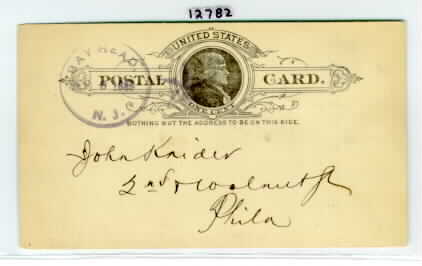 12782
UNITED STATES
BAY HEAD
N. J.
POSTAL CARD.
ONE CENT
NOTHING BUT THE ADDRESS TO BE ON THIS SIDE.
John Kaider
2nd & Walnut St
Phila